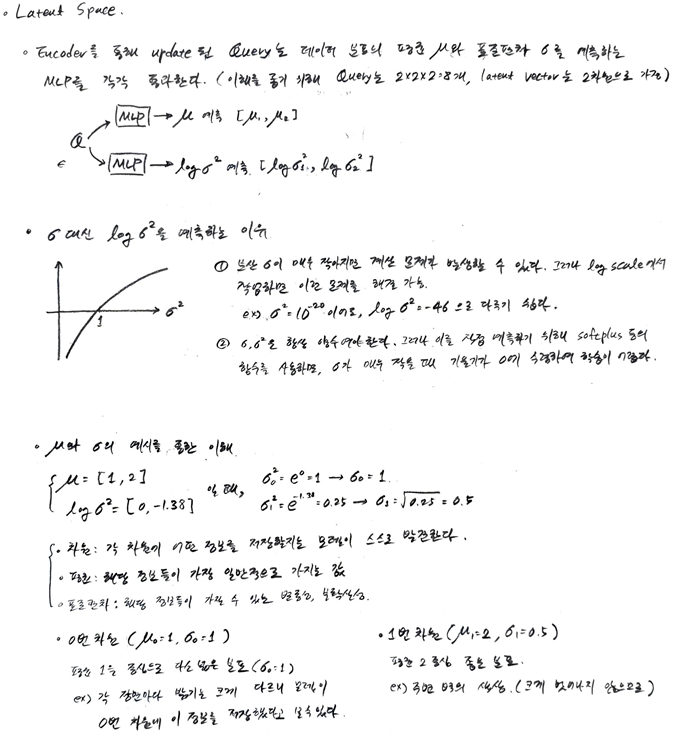 ◦ Latent Space.
◦ Encoder를 통해 update된 Query는 데이터 분포의 평균 μ와 표준편차 σ를 예측하는
MLP를 각각 통과한다. (이해를 돕기 위해 Query는 2×2×2=8개, latent vector는 2차원으로 가정)
MLP → μ 예측 [μ₁, μ₂]
Q
ε MLP → log σ² 예측 [log σ₁², log σ₂²]
• σ 대신 log σ²을 예측하는 이유
① 분산 σ이 매우 작아지면 계산 문제가 발생할 수 있다. 그러나 log scale에서
작업하면 이런 문제를 해결 가능.
ex). σ²=10⁻²⁰이어도, log σ²=-46으로 다루기 쉽다.
1 σ²
② σ, σ²은 항상 양수여야 한다. 그러나 이를 직접 예측하기 위해 softplus 등의
함수를 사용하면, σ가 매우 작을 때 기울기가 0에 수렴하여 학습이 어렵다.
◦ μ와 σ의 예시를 통한 이해
μ = [1, 2] 일 때, σ₀²=e⁰=1 → σ₀=1.
log σ²=[0, -1.38] σ₁²=e^-1.38=0.25 → σ₁=√0.25=0.5
◦ 차원: 각 차원에 어떤 정보를 저장할지는 모델이 스스로 발견한다.
◦ 평균: 해당 정보들이 가장 일반적으로 가지는 값
◦ 표준편차: 해당 정보들이 가질 수 있는 변동성, 불확실성.
◦ 0번 차원 (μ₀=1, σ₀=1)
평균 1을 중심으로 다소 넓은 분포 (σ₀=1)
ex) 각 장면마다 밝기는 크게 다르니 모델이
0번 차원에 이 정보를 저장했다고 볼 수 있다.
• 1번 차원 (μ₁=2, σ₁=0.5)
평균 2 중심 좁은 분포.
ex) 색상. (크게 벗어나지 않으므로)